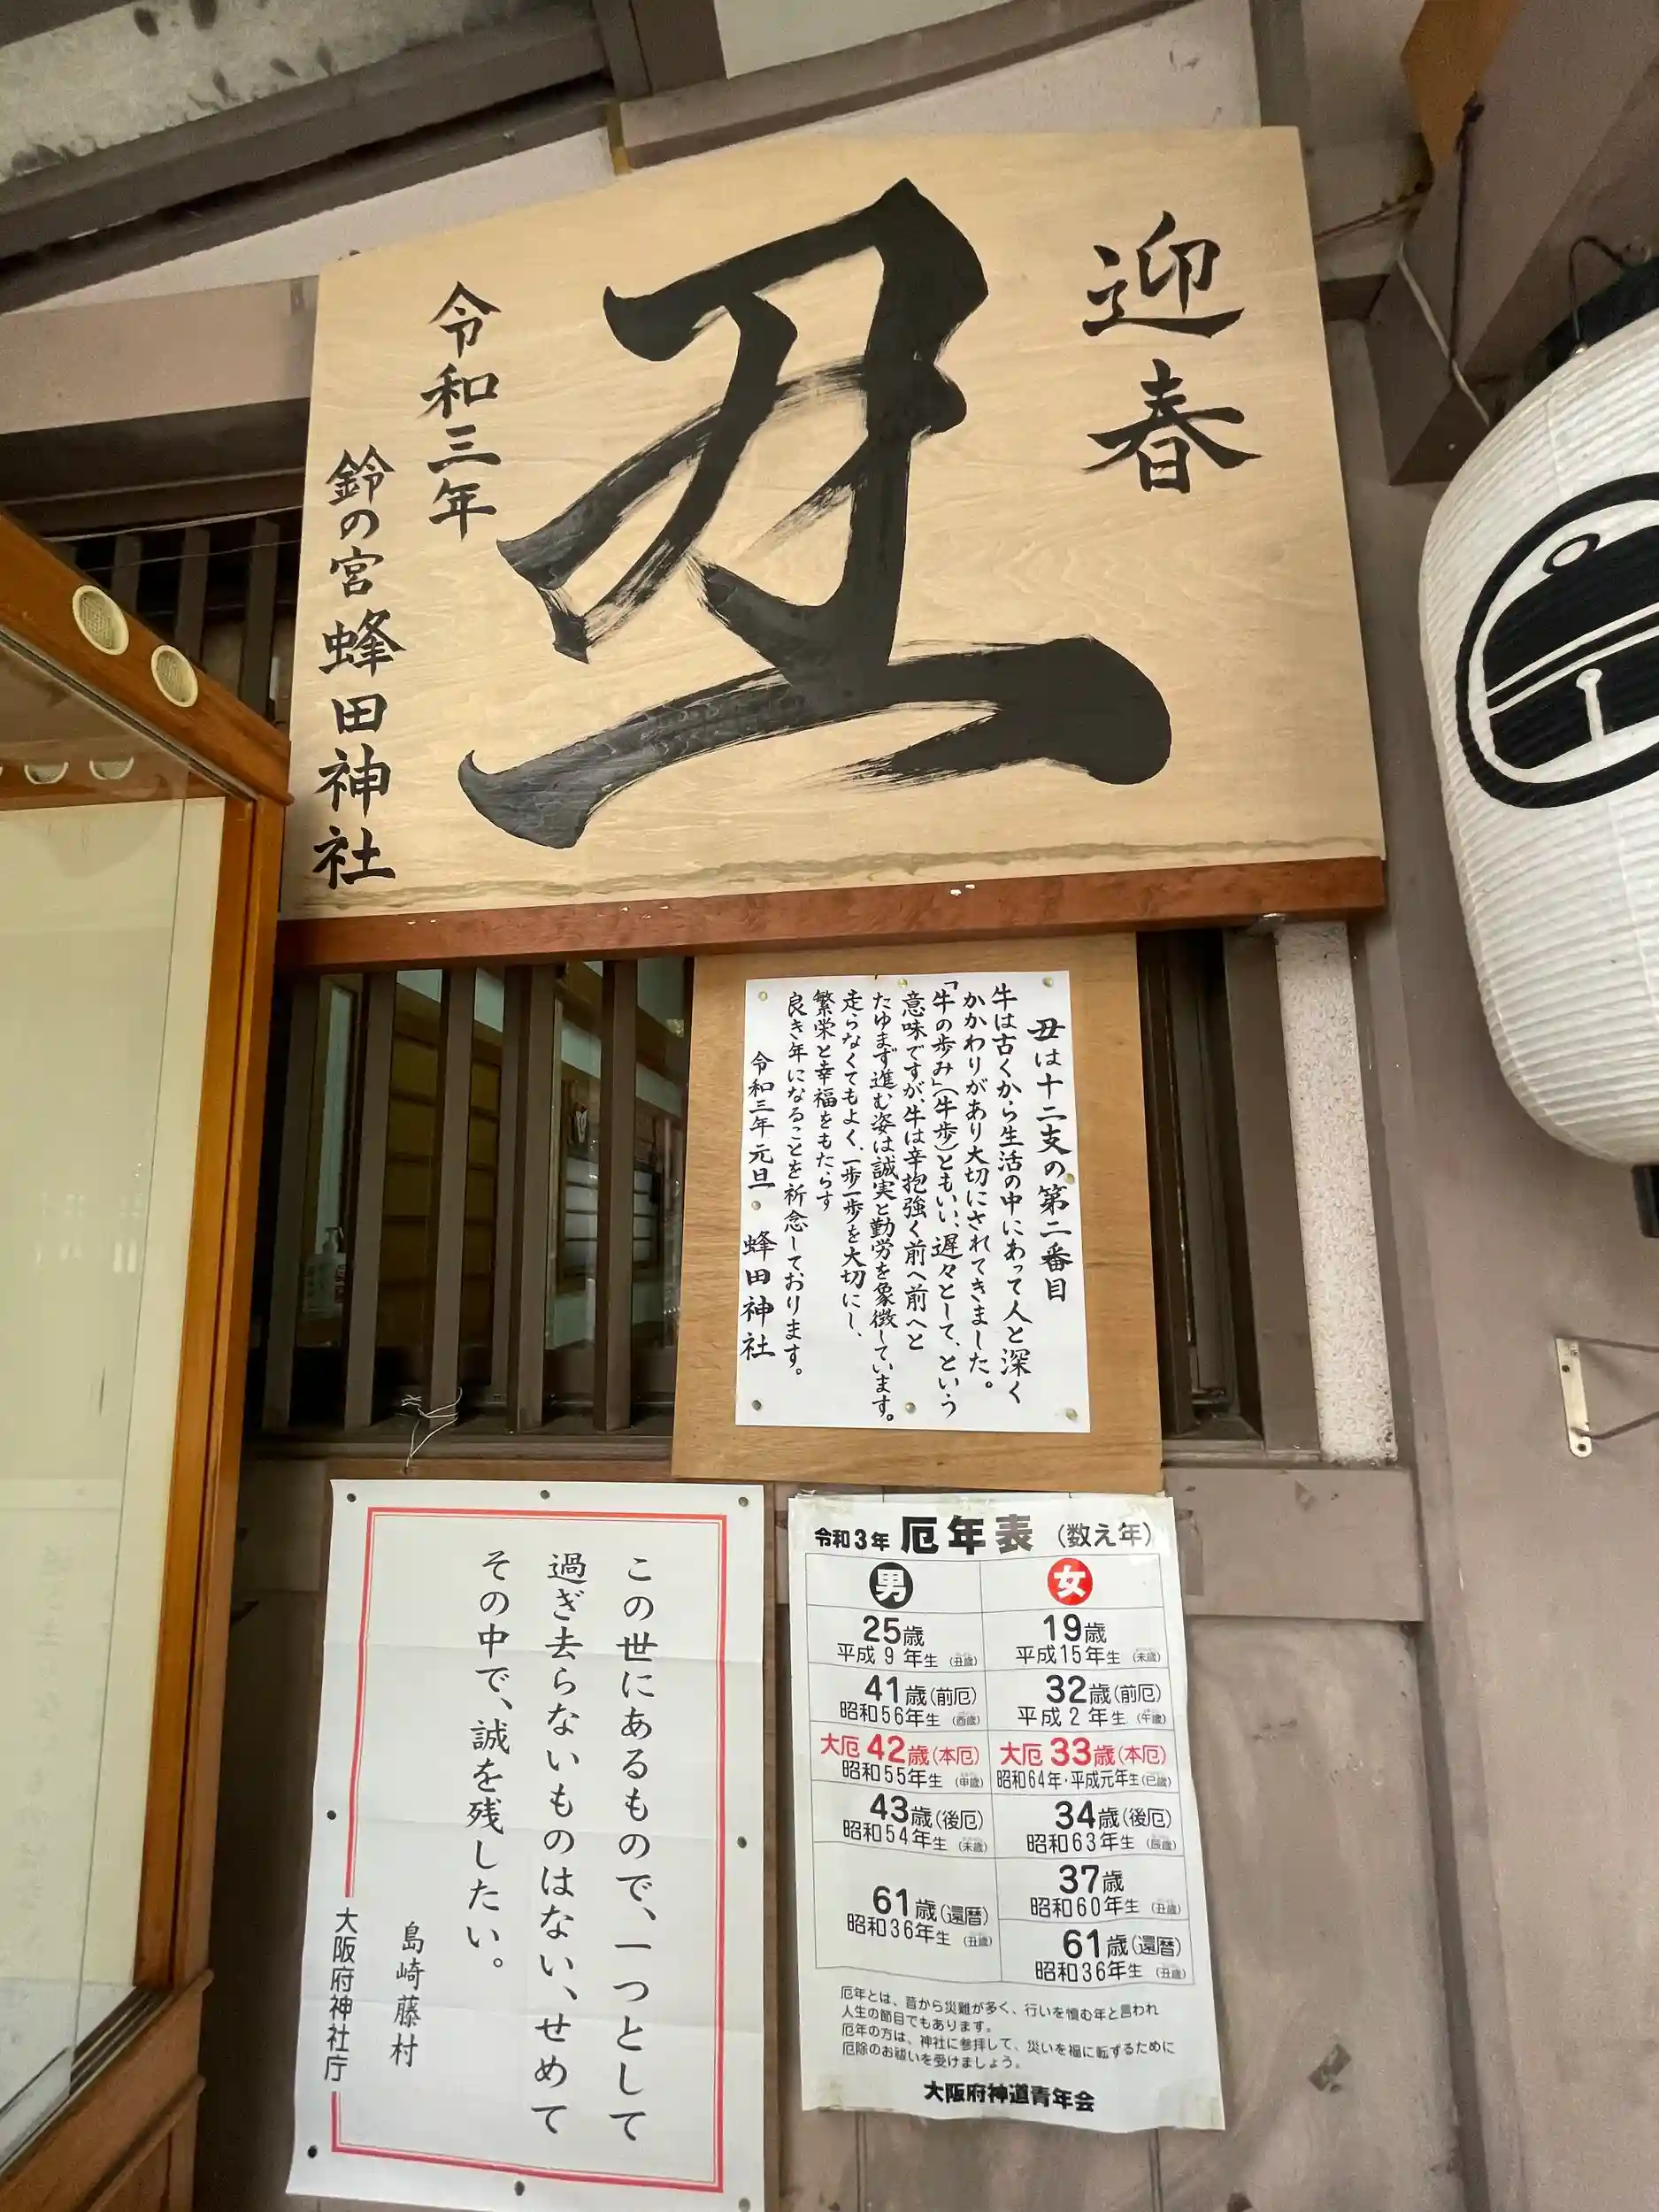 迎春
丑
令和三年
鈴の宮 蜂田神社
丑は十二支の第二番目
牛は古くから生活の中にあって人と深く
かかわりがあり大切にされてきました。
「牛の歩み」(牛歩)ともいい、遅々として、という
意味ですが、牛は辛抱強く前へ前へと
たゆまず進む姿は誠実と勤労を象徴しています。
走らなくてもよく、一歩一歩を大切にし、
繁栄と幸福をもたらす
良き年になることを祈念しております。
令和三年元旦 蜂田神社
この世にあるもので、一つとして
過ぎ去らないものはない、せめて
その中で、誠を残したい。
島崎藤村
大阪府神社庁
令和3年 厄年表 (数え年)
男 女
25歳
平成9年生 (丑歳)
19歳
平成15年生 (未歳)
41歳(前厄)
昭和56年生 (酉歳)
32歳(前厄)
平成2年生 (午歳)
大厄 42歳(本厄)
昭和55年生 (申歳)
大厄 33歳(本厄)
昭和64年・平成元年生(巳歳)
43歳(後厄)
昭和54年生 (未歳)
34歳(後厄)
昭和63年生 (辰歳)
37歳
昭和60年生 (丑歳)
61歳(還暦)
昭和36年生 (丑歳)
61歳(還暦)
昭和36年生 (丑歳)
厄年とは、昔から災難が多く、行いを慎む年と言われ
人生の節目でもあります。
厄年の方は、神社に参拝して、災いを福に転ずるために
厄除のお祓いを受けましょう。
大阪府神道青年会